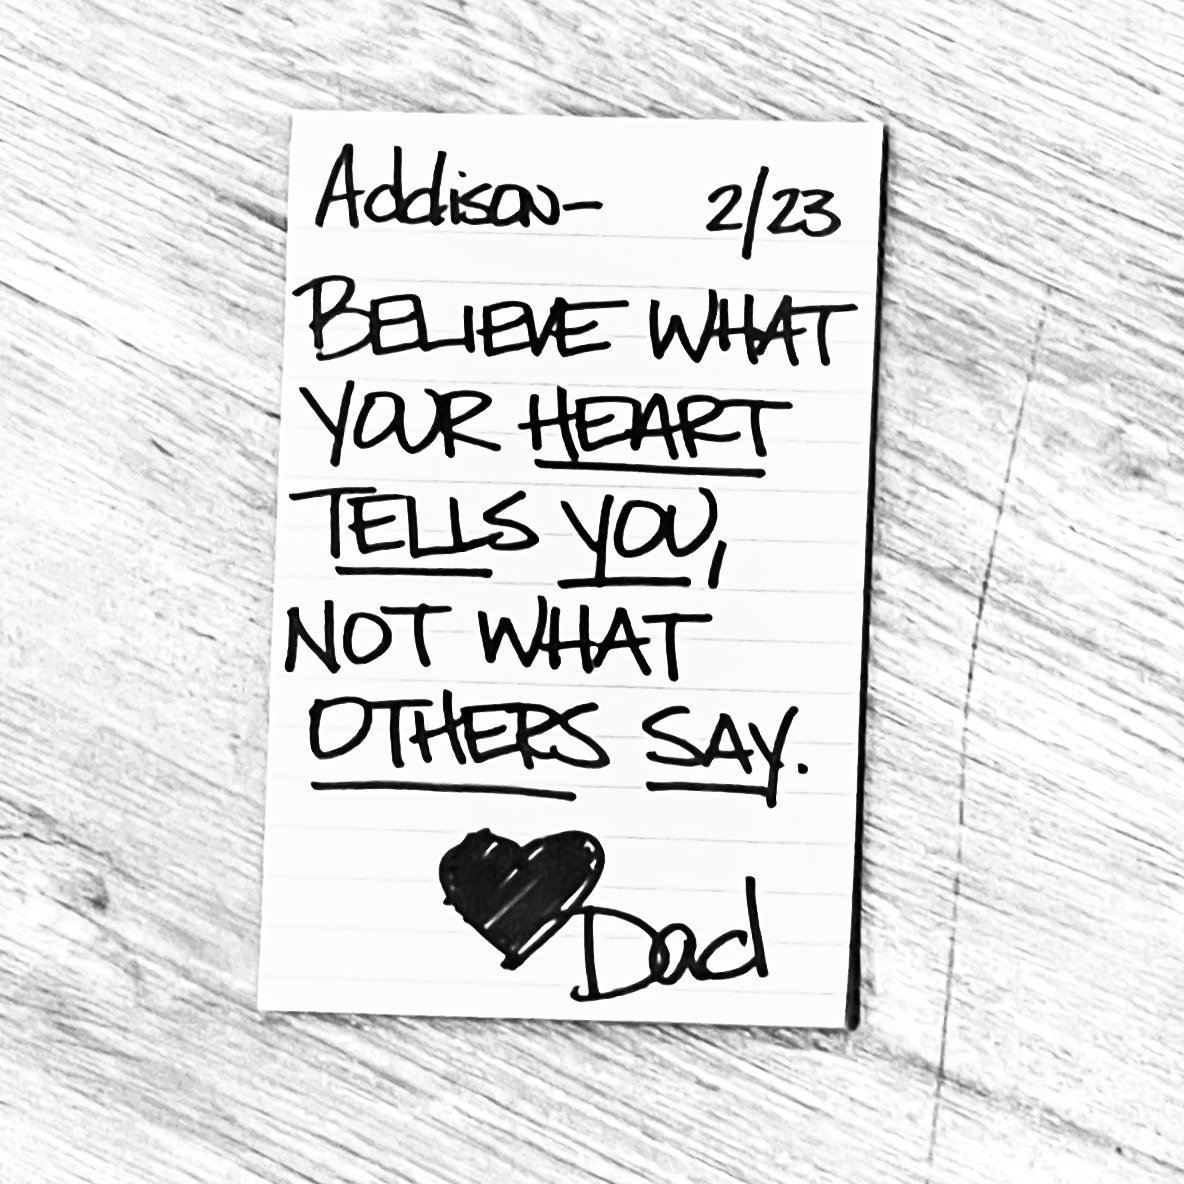 Addison- 2/23
BELIEVE WHAT
YOUR HEART
TELLS YOU,
NOT WHAT
OTHERS SAY.
Dad